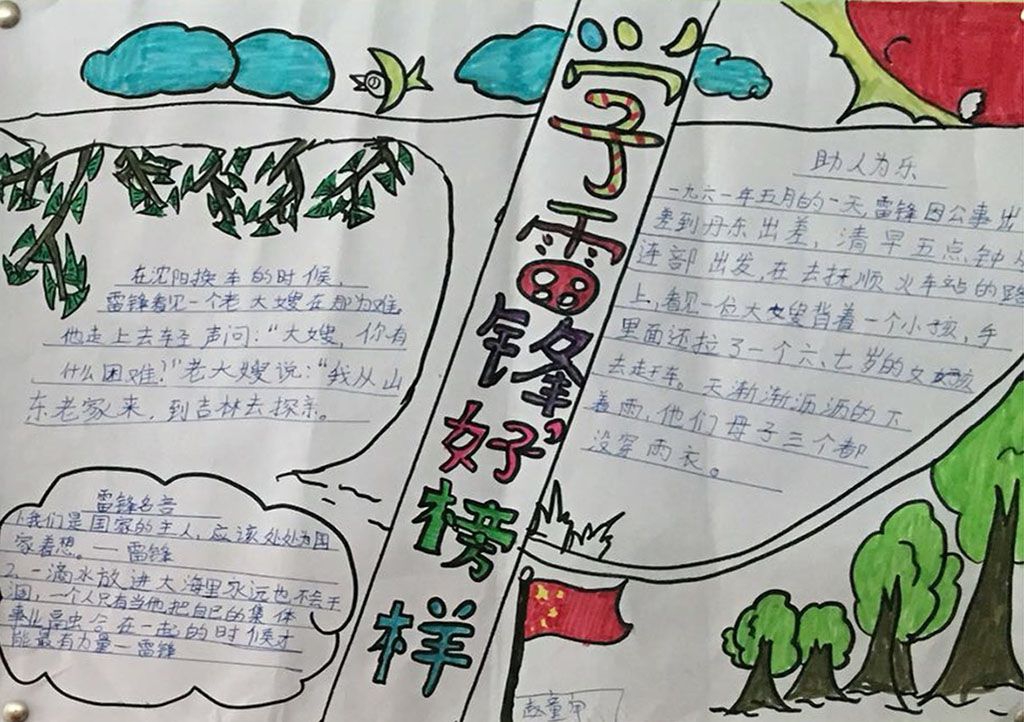 学雷锋好榜样
在沈阳换车的时候,
雷锋看见一个老大嫂在那为难,
他走上去轻声问:“大嫂,你有
什么困难?”老大嫂说:“我从山
东老家来,到吉林去探亲。
雷锋名言
1、我们是国家的主人,应该处处为国
家着想。——雷锋
2、一滴水放进大海里永远也不会干
涸,一个人只有当他把自己的集体
事业
在一起的时候才
能最有力量—雷锋
助人为乐
一九六一年五月的一天,雷锋因公事出
差到丹东出差,清早五点钟
连部出发,在去抚顺火车站的路
上,看见一位大嫂背着一个小孩,手
里面还拉了一个六、七岁的女孩
去赶车。天渐渐沥沥的下
着雨,他们母子三个都
没穿雨衣。